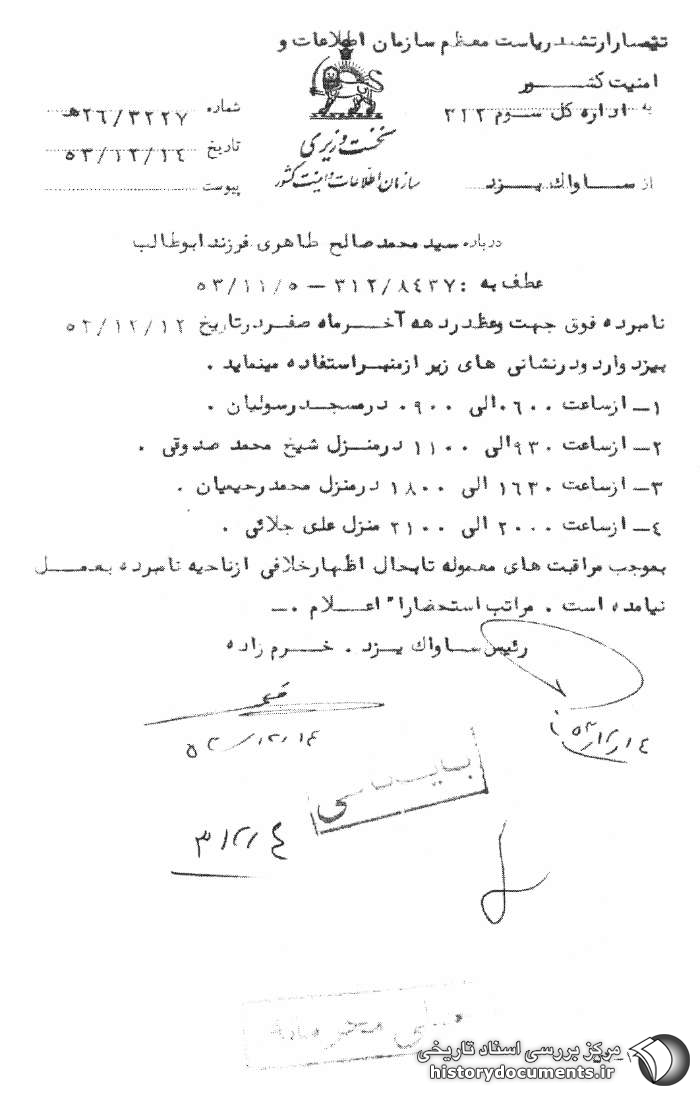 تیمسار ارتشبد ریاست معظم سازمان اطلاعات و
امنیت کشــور
به اداره کل سوم ۳۱۲
شماره ۲۶/۳۲۲۷هـ
نخست وزیری
تاریخ ۵۳/۱۲/۱٤
سازمان اطلاعات و امنیت کشور
از ســاواك یــزد
پیوست
درباره سید محمد صالح طاهری فرزند ابوطالب
عطف به : ۳۱۲/۸٤۳۷ – ۵۳/۱۱/۵
نامبرده فوق جهت وعظ در دهه آخــر ماه صفر در تاریخ ۵۳/۱۲/۱۲
بیزد وارد و در نشانی های زیر از منبــر استفاده مینماید .
۱– از ساعت ۰۶۰۰ الی ۰۹۰۰ در مسجــد رسولیان .
۲– از ساعت ۰۹۳۰ الی ۱۱۰۰ در منــزل شیخ محمد صدوقی .
۳– از ساعت ۱۶۳۰ الی ۱۸۰۰ در منزل محمد رحیمیان .
٤– از ساعت ۲۰۰۰ الی ۲۱۰۰ منزل علی جلائی .
بموجب مراقبت های معموله تابحال اظهار خلافی از ناحیه نامبرده بعمــل
نیامده است . مراتب استحضارا" اعــلام .–
رئیس ســاواك یــزد . خــرم زاده
۵۳/۱۲/۱٤
۵۳/۱۲/۱٤
بایگانی
۳۱۲/٤
خیلی محرمانه
مرکز بررسی اسناد تاریخی
historydocuments.ir